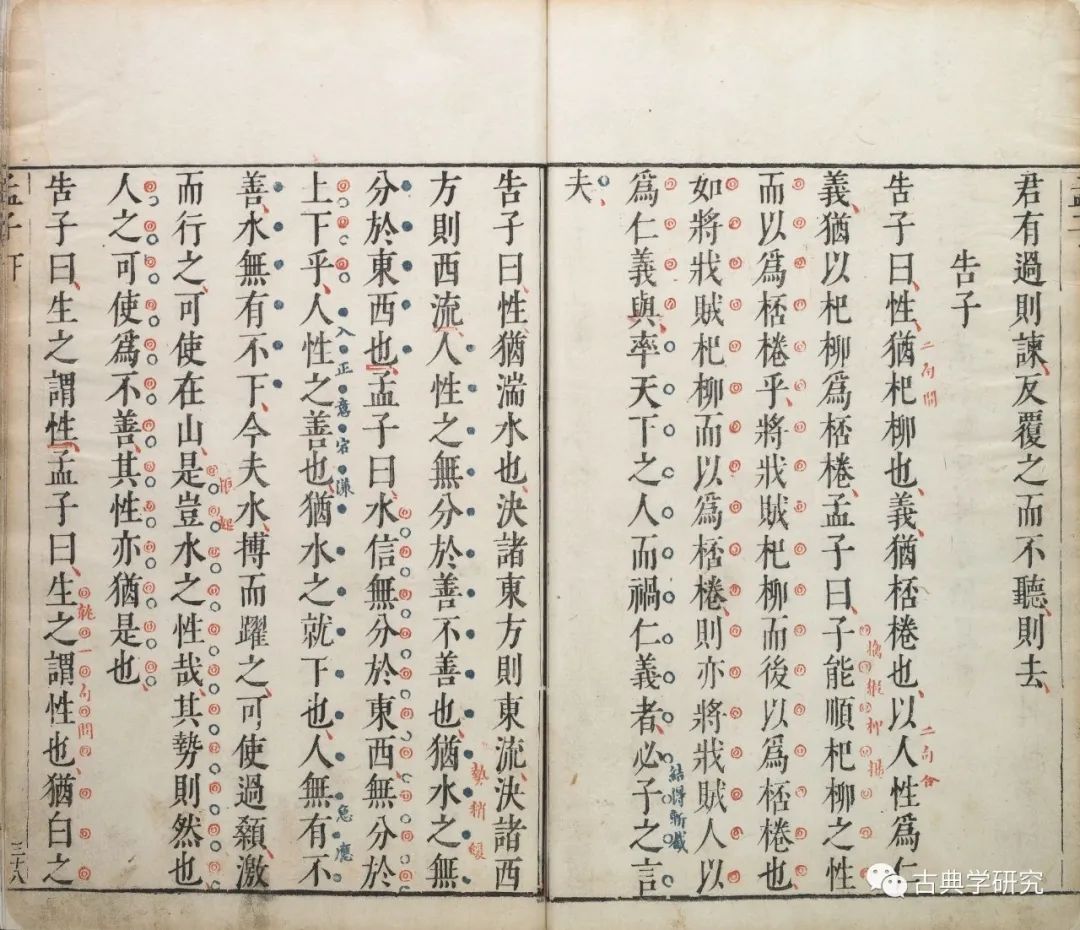 君有過則諫反覆之而不聽則去
告子
告子曰性猶杞柳也義猶桮棬也以人性爲仁
二句開
二句合
義猶以杞柳爲桮棬孟子曰子能順杞柳之性
而以爲桮棬乎將戕賊杞柳而後以爲桮棬也
如將戕賊杞柳而以爲桮棬則亦將戕賊人以
爲仁義與率天下之人而禍仁義者必子之言
結得斬截
夫
告子曰性猶湍水也決諸東方則東流決諸西
方則西流人性之無分於善不善也猶水之無
勢稍緩
分於東西也孟子曰水信無分於東西無分於
上下乎人性之善也猶水之就下也人無有不
入正意
急應
善水無有不下今夫水搏而躍之可使過顙激
而行之可使在山是豈水之性哉其勢則然也
人之可使爲不善其性亦猶是也
告子曰生之謂性孟子曰生之謂性也猶白之
孟子下
三十八
古典学研究